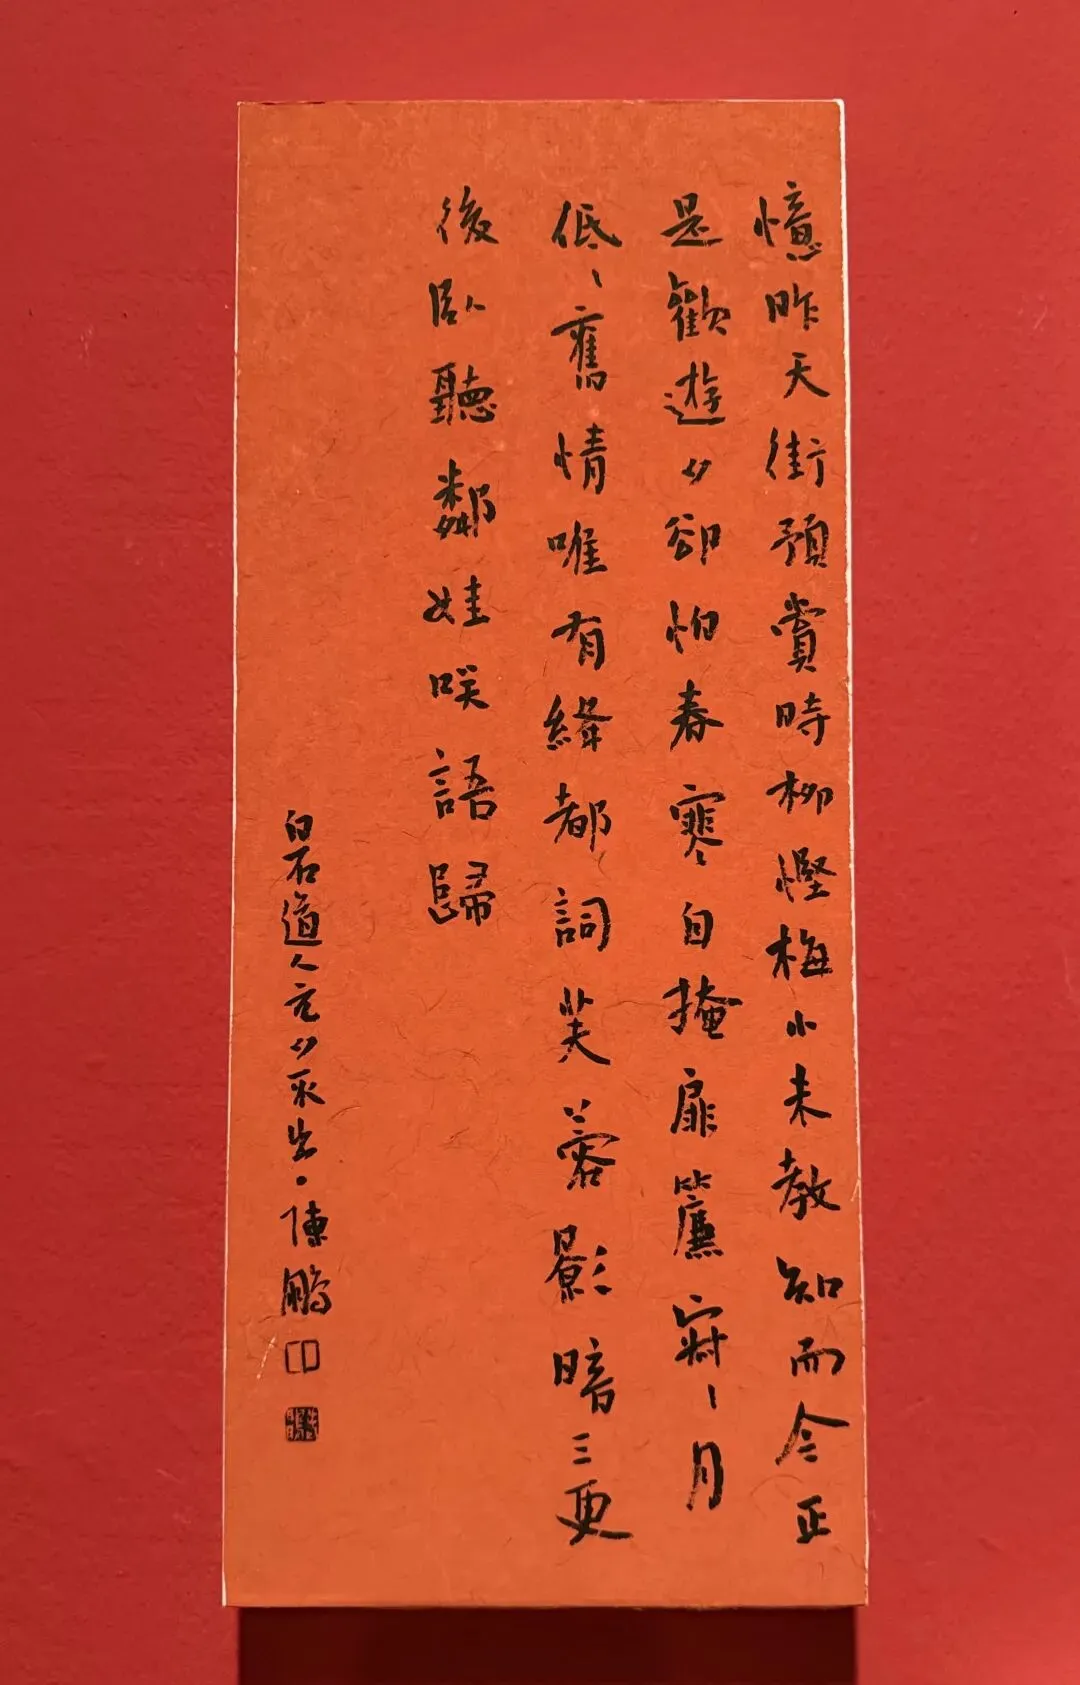 憶昨天街預賞時柳慳梅小未教知而今正
是歡遊夕卻怕春寒自掩扉簾寂、月
低、舊情唯有絳都詞芙蓉影暗三更
後臥聽鄰娃咲語歸
白石道人元夕不出。陳鵬